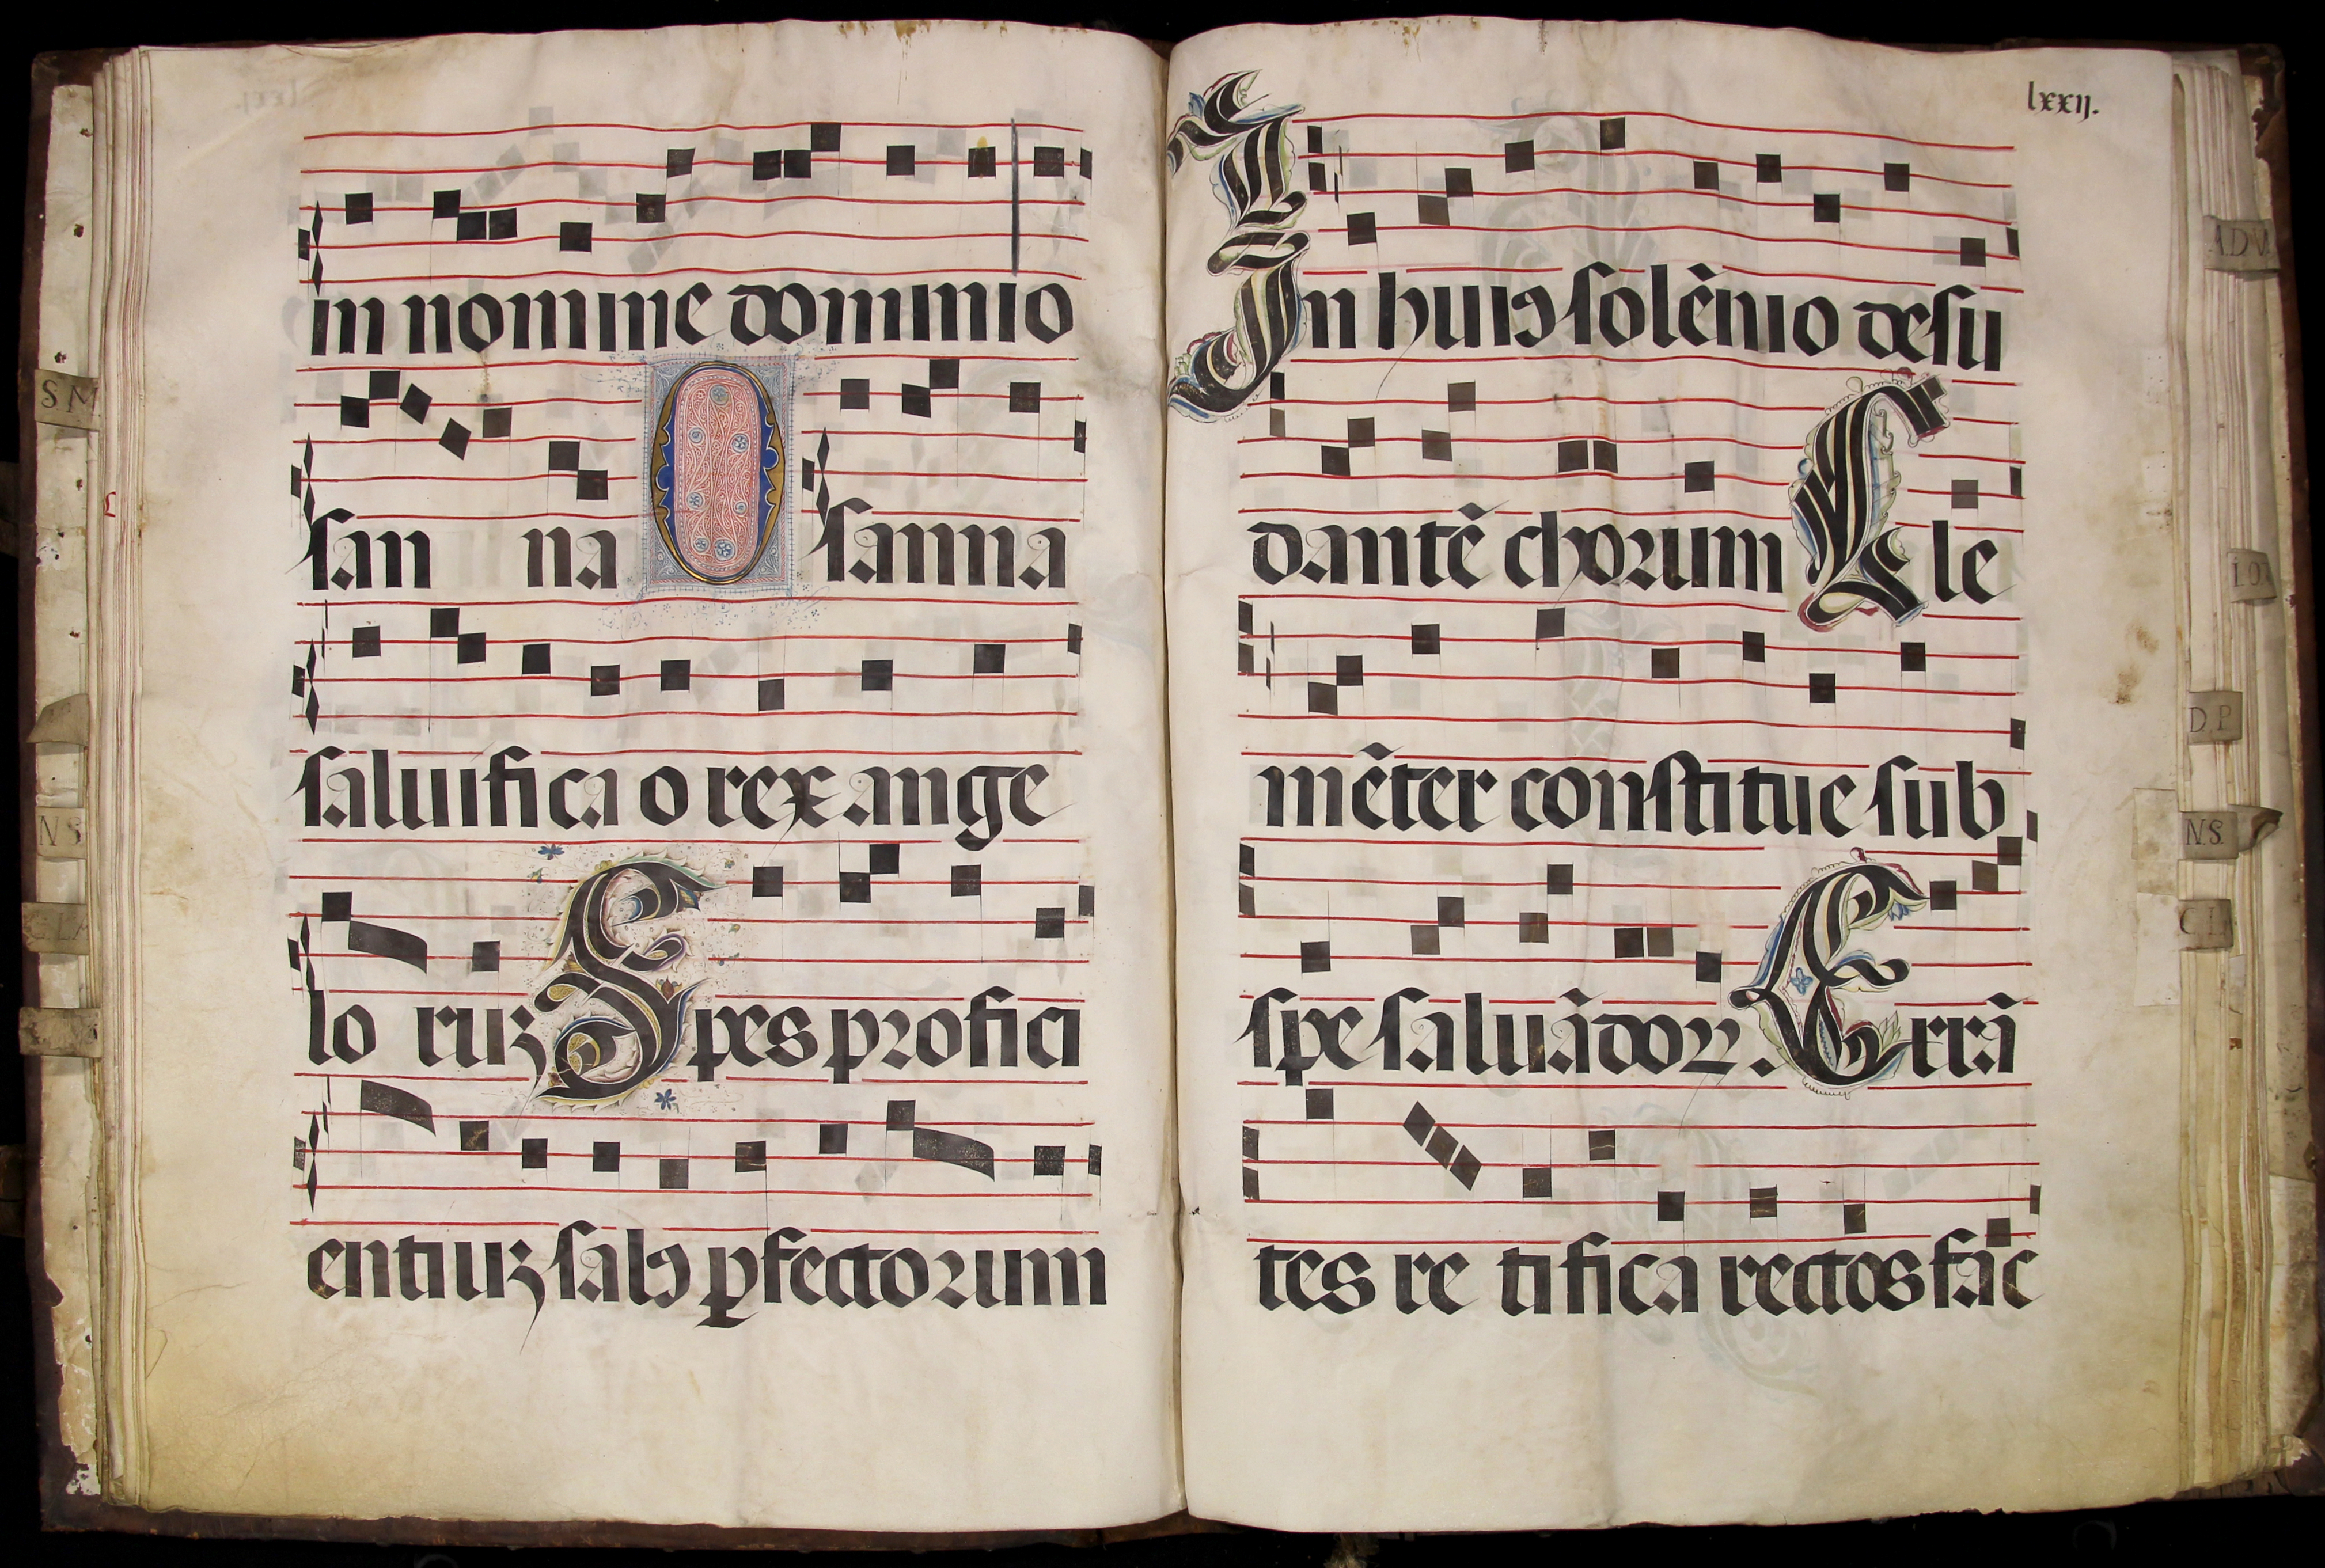 in nomine domini o
san na O sanna
salvifica o rex ange
lo ruʒ Spes profici
entiuʒ salꝰ ꝑfectorum
lxxij.
In huiꝰ solẽnio desu
dantẽ chorum Cle
mẽter constitue sub
spe saluãdoꝝ. Errã
tes re tifica rectos fac
S M
N S
ADV
D P
N.S.